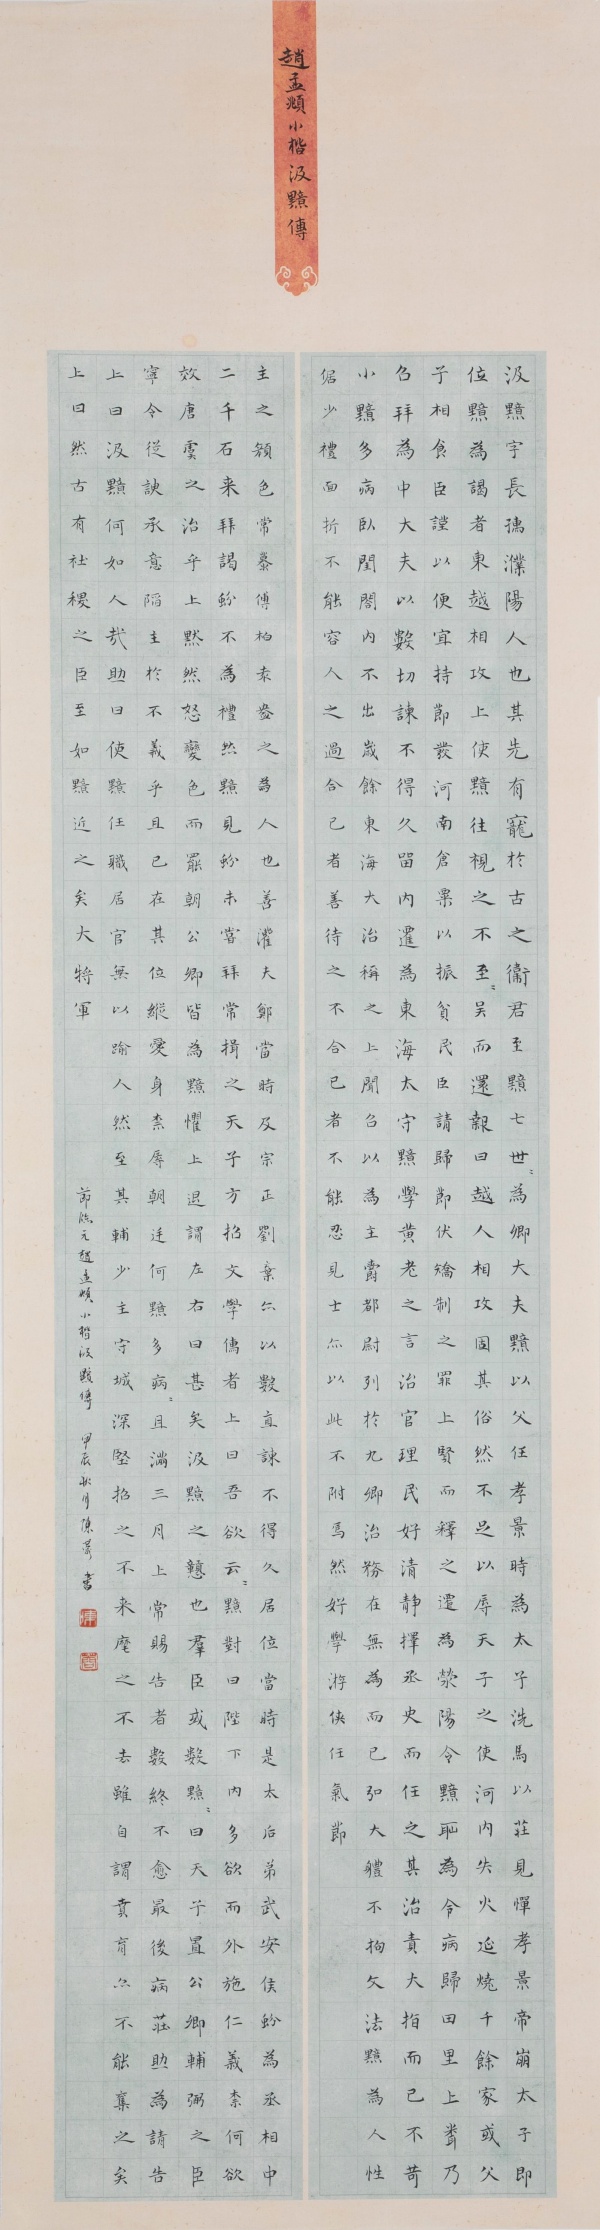 趙孟頫小楷汲黯傳
汲黯字長孺濮陽人也其先有寵於古之衛君至黯七世〻為卿大夫黯以父任孝景時為太子洗馬以莊見憚孝景帝崩太子即
位黯為謁者東越相攻上使黯往視之不至〻吴而還報曰越人相攻固其俗然不足以辱天子之使河内失火延燒千餘家或父
子相食臣謹以便宜持節發河南倉粟以振貧民臣請歸節伏矯制之罪上賢而釋之遷為滎陽令黯恥為令病歸田里上聞乃
召拜為中大夫以數切諫不得久留内遷為東海太守黯學黄老之言治官理民好清静擇丞史而任之其治責大指而已不苛
小黯多病臥閨閤内不出歲餘東海大治稱之上聞召以為主爵都尉列於九卿治務在無為而已弘大體不拘文法黯為人性
倨少禮面折不能容人之過合己者善待之不合己者不能忍見士亦以此不附焉然好學游俠任氣節
主之顏色常慕傅柏袁盎之為人也善灌夫鄭當時及宗正劉棄亦以數直諫不得久居位當時是太后弟武安侯蚡為丞相中
二千石来拜謁蚡不為禮然黯見蚡未嘗拜常揖之天子方招文學儒者上曰吾欲云〻黯對曰陛下内多欲而外施仁義柰何欲
效唐虞之治乎上默然怒變色而罷朝公卿皆為黯懼上退謂左右曰甚矣汲黯之戇也羣臣或數黯〻曰天子置公卿輔弼之臣
寧令從諛承意陷主於不義乎且已在其位縱愛身柰辱朝廷何黯多病〻且滿三月上常賜告者數終不愈最後病莊助為請告
上曰汲黯何如人哉助曰使黯任職居官無以踰人然至其輔少主守城深堅招之不来麾之不去雖自謂賁育亦不能奪之矣
上曰然古有社稷之臣至如黯近之矣大將軍
節臨元趙孟頫小楷汲黯傳 甲辰秋月陳 書